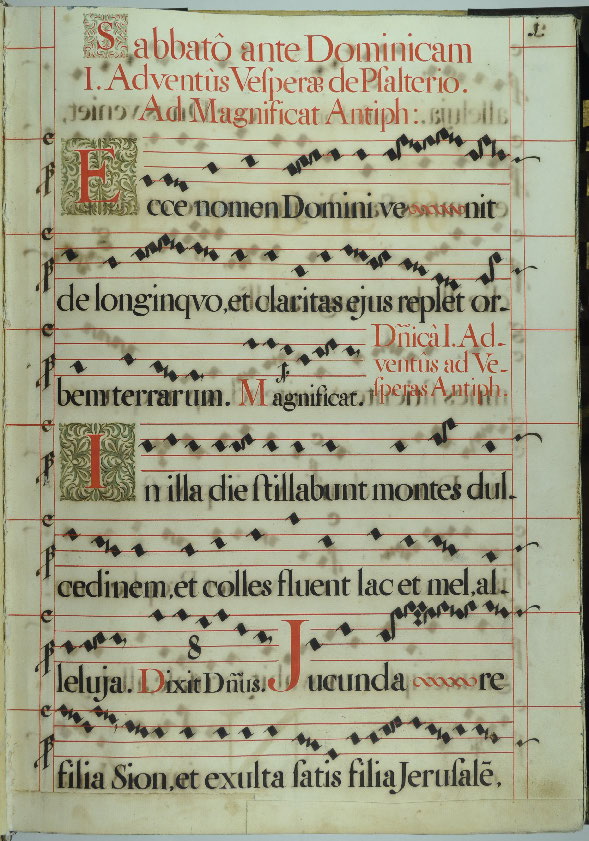 1.
Sabbatô ante Dominicam
I. Adventùs Veſperæ de Pſalterio.
Ad Magnificat Antiph:.
Ecce nomen Domini venit
de longinqvo, et claritas ejus replet or-
bem terrarum. Magnificat. 1.
Dn̄icâ I. Ad-
ventus ad Ve-
ſperas Antiph.
In illa die ſtillabunt montes dul-
cedinem, et colles fluent lac et mel, al-
leluja. Dixit Dn̄us. 8 Jucunda re
filia Sion, et exulta ſatis filia Jeruſalē,